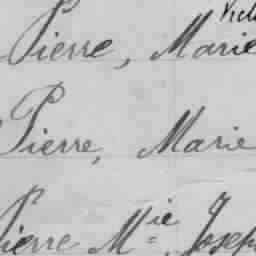 Pierre, Marie
Pierre, Marie
Pierre M^ie Joseph